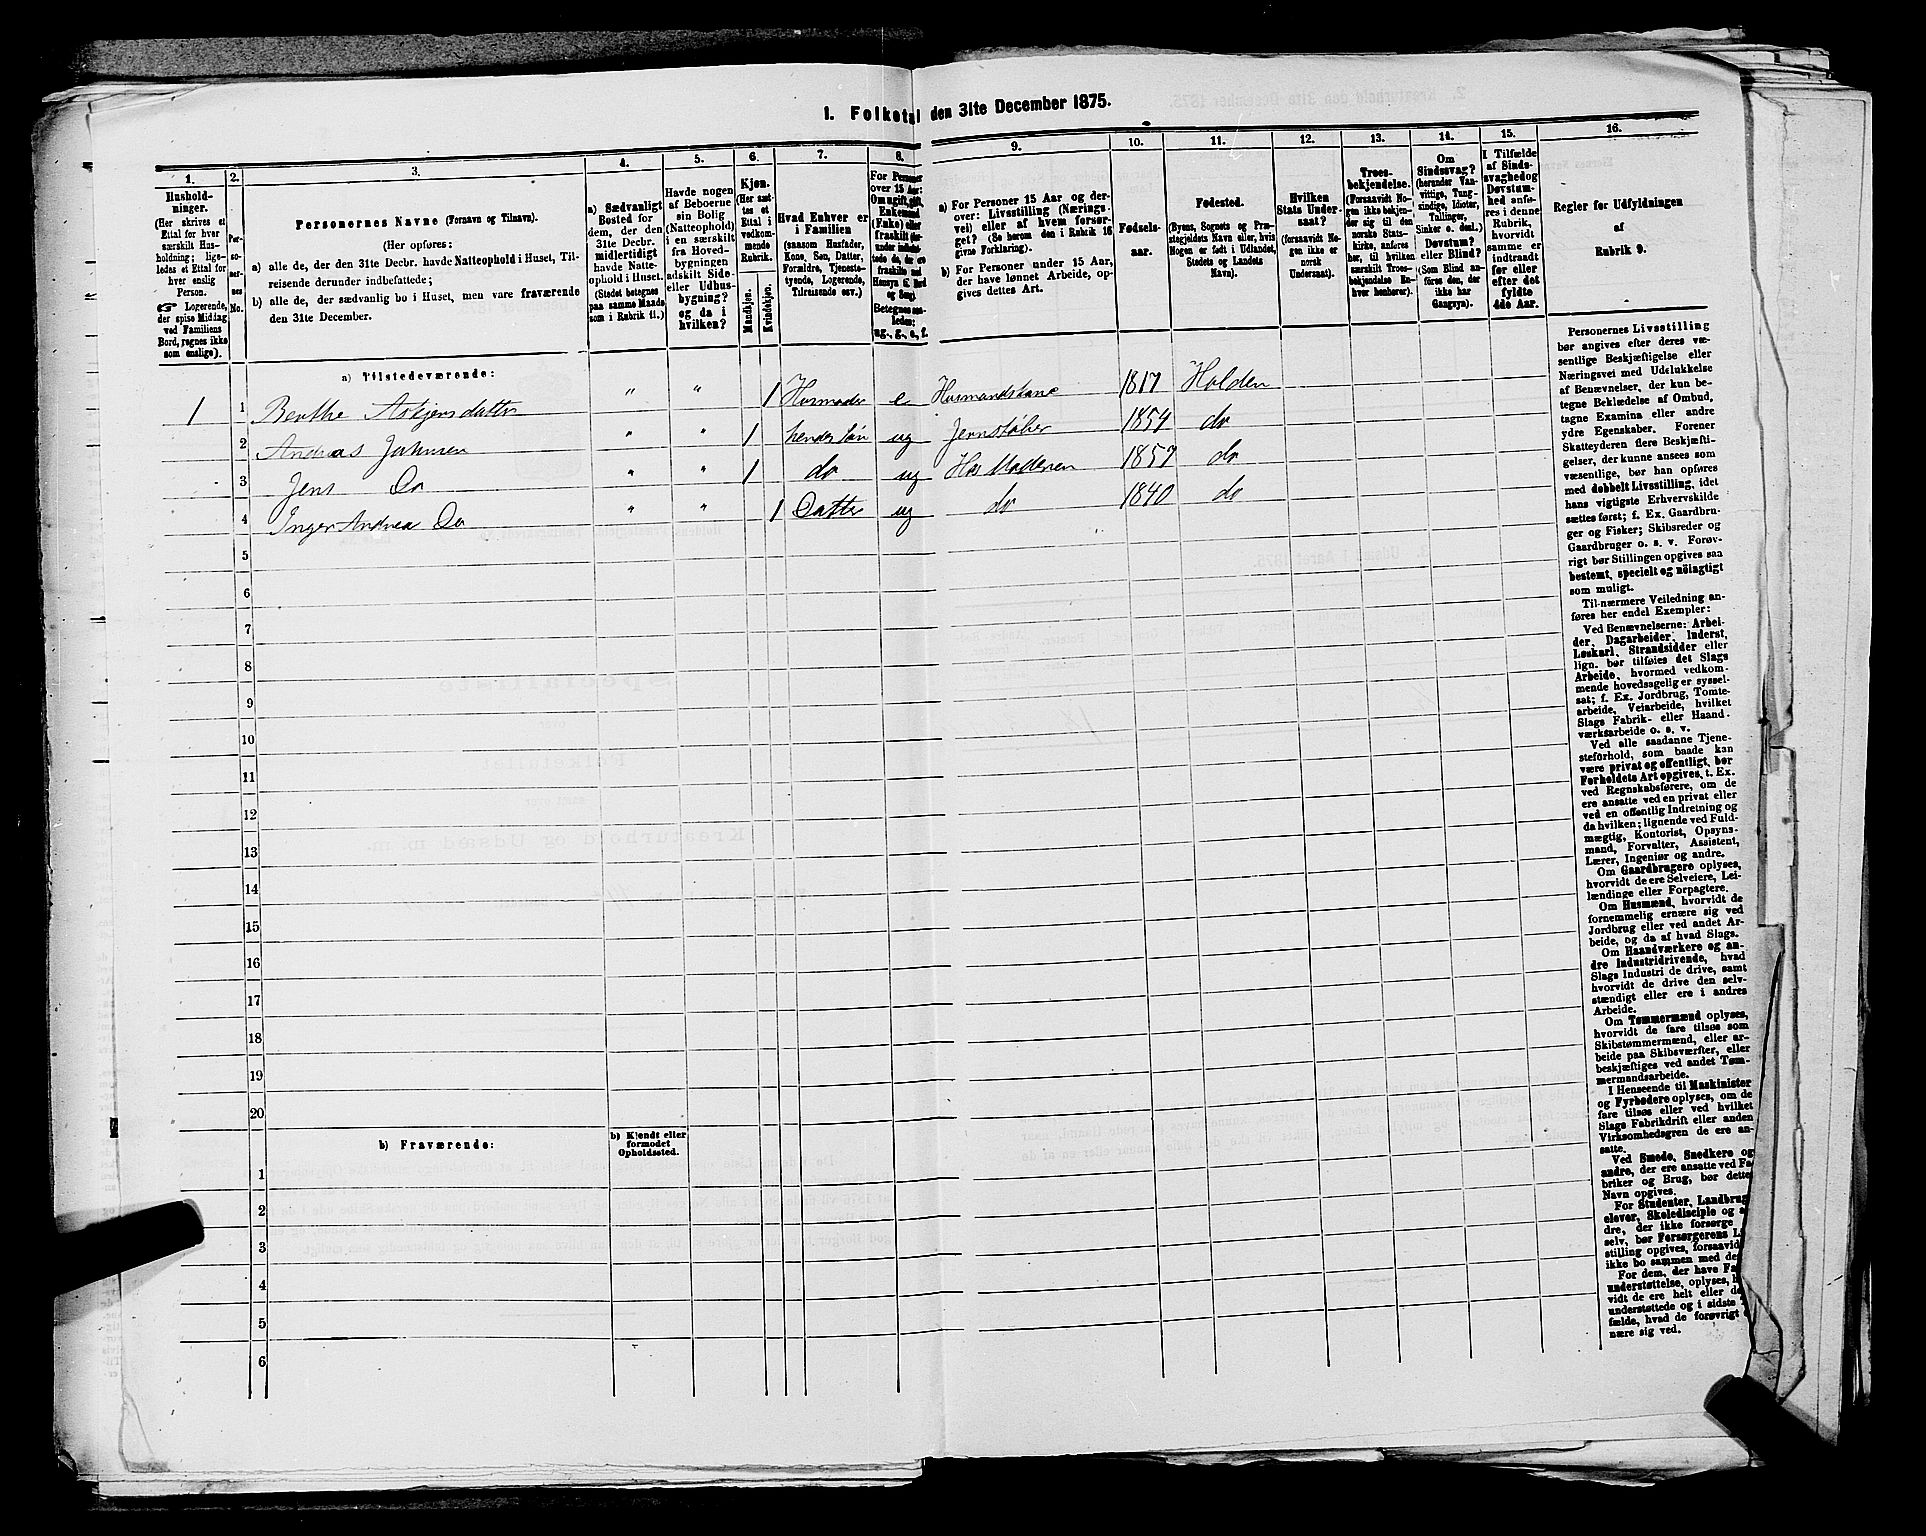 1. Folketal den 31te December 1875.
1.
Hushold-
ninger.
(Her skrives et
Ettal for hver
særskilt Hus-
holdning; lige-
ledes et Ettal for
hver enslig
Person.
☞ Logerende,
der spise Middag
ved Familiens
Bord, regnes ikke
som enslige).
2.
Per-
so-
ner-
nes
No.
3.
Personernes Navne (Fornavn og Tilnavn).
(Her opføres:
a) alle de, der den 31te Decbr. havde Natteophold i Huset, Til-
reisende derunder indbefattede;
b) alle de, der sædvanlig bo i Huset, men vare fraværende
den 31te December.
4.
a) Sædvanligt
Bosted for
dem, der den
31te Decbr.
midlertidigt
havde Natte-
ophold i Huset.
(Stedet betegnes
paa samme Maade
som i Rubrik 11.)
5.
Havde nogen
af Beboerne
sin Bolig
(Natteophold)
i en særskilt
fra Hoved-
bygningen
adskilt Side-
eller Udhus-
bygning?
og da i
hvilken?
6.
Kjøn.
(Her sæt-
tes et
Ettal i
vedkom-
mende
Rubrik.
Mandkjøn.
Kvindekjøn.
7.
Hvad Enhver er
i Familien
(saasom Husfader,
Kone, Søn, Datter,
Forældre, Tjeneste-
tyende, Logerende,
Tilreisende osv.)
8.
For Personer
over 15 Aar:
Om ugift, gift,
Enkemand
(Enke) eller
fraskilt
Betegnes saa-
ledes:
ug., g., e., f.
9.
a) For Personer 15 Aar og der-
over: Livsstilling (Nærings-
vei) eller af hvem forsør-
get? (Se herom den i Rubrik 16
givne Forklaring).
b) For Personer under 15 Aar,
der have lønnet Arbeide, op-
gives dettes Art.
10.
Fødsels-
aar.
11.
Fødested.
(Byens, Sognets og Præ-
stegjeldets Navn eller, hvis
Nogen er født i Udlandet,
Stedets og Landets
Navn).
12.
Hvilken
Stats Under-
saat?
(forsaavidt No-
gen ikke er
norsk
Undersaat).
13.
Troes-
bekjendelse.
(Forsaavidt No-
gen ikke bekjen-
der sig til den
norske Stats-
kirke, anføres
her, til hvilken
særskilt Troes-
bekjendelse En-
hver henhører).
14.
Om
Sindssvag?
(herunder Van-
vittige, Tung-
sindige, Idioter,
Tullinger,
Sinker o. desl.)
Døvstum?
eller Blind?
(Som Blind an-
føres den, der
ikke har
Gangsyn).
15.
I Tilfælde
af Sinds-
svaghed og
Døvstum-
hed anfø-
res i denne
Rubrik,
hvorvidt
samme er
indtraadt
før eller
efter det
fyldte
4de Aar.
16.
Regler for Udfyldningen
af
Rubrik 9.
a) Tilstedeværende:
1 1 Berthe Askjersdatter " " 1 Husmoder e Husmandskone 1817 Holden
2 Andreas Johnsen " " 1 hendes Søn ug Jernstøber 1854 do
3 Jens Do " " 1 do ug Hos Moderen 1857 do
4 Inger Andrea Do " " 1 Datter ug do 1840 do
5
6
7
8
9
10
11
12
13
14
15
16
17
18
19
20
b) Fraværende:
b) Kjendt eller
formodet
Opholdssted.
1
2
3
4
5
6
Personernes Livsstilling
bør angives efter deres væ-
sentlige Beskjæftigelse eller
Næringsvei med Udelukkelse
af Benævnelser, der kun be-
tegne Beklædelse af Ombud,
tagne Examina eller andre
ydre Egenskaber. Forener
Skatteyderen flere Beskjæfti-
gelser, der kunne ansees som
væsentlige, bør han opføres
med dobbelt Livsstilling, idet
hans vigtigste Erhvervskilde
sættes først; f. Ex. Gaardbru-
ger og Fisker; Skibsreder og
Gaardbruger o. s. v. Forøv-
rigt bør Stillingen opgives saa
bestemt, specielt og nöiagtigt
som muligt.
Til nærmere Veiledning an-
føres her endel Exempler:
Ved Benævnelserne: Arbei-
der, Dagarbeider, Inderst,
Løskarl, Strandsidder eller
lign. bør tilføies det Slags
Arbeide, hvormed vedkom-
mende hovedsagelig er syssel-
sat; f. Ex. Jordbrug, Tomte-
arbeide, Veiarbeide, hvilket
Slags Fabrik- eller Haand-
værksarbeide o. s. v.
Ved alle saadanne Tjene-
steforhold, som baade kan
være privat og offentligt, bør
Forholdets Art opgives, t. Ex.
ved Regnskabsførere, om de
ere ansatte ved en privat eller
ved en offentlig Indretning og
da hvilken; lignende ved Fuld-
mægtig, Kontorist, Opsyns-
mand, Forvalter, Assistent,
Lærer, Ingeniør og andre.
Om Gaardbrugere oplyses,
hvorvidt de ere Selveiere, Lei-
lændinge eller Forpagtere.
Om Husmænd, hvorvidt de
fornemmelig ernære sig ved
Jordbrug eller ved andet Ar-
beide, og da af hvad Slags.
Om Haandværkere og an-
dre Industridrivende, hvad
Slags Industri de drive, samt
hvorvidt de drive den selv-
stændigt eller ere i andres
Arbeide.
Om Tømmermænd oplyses,
hvorvidt de fare tilsøs som
Skibstømmermænd, eller ar-
beide paa Skibsværfter, eller
beskjæftiges ved andet Tøm-
mermandsarbeide.
I Henseende til Maskinister
og Fyrbødere oplyses, om de
fare tilsøs eller ved hvilket
Slags Fabrikdrift eller anden
Virksomhedsgren de ere an-
satte.
Ved Smede, Snedkere og
andre, der ere ansatte ved Fa-
briker og Brug, bør dette
Navn opgives.
For Studenter, Landbrugs-
elever, Skoledisciple og
dre, der ikke forsørge
selv, bør Forsørgerens
stilling opgives, forsaavidt
ikke bo sammen med
For dem, der have
understøttelse, oplyses,
vidt de ere helt eller
understøttede og i sidste
fælde, hvad de forøvrigt
nære sig ved.